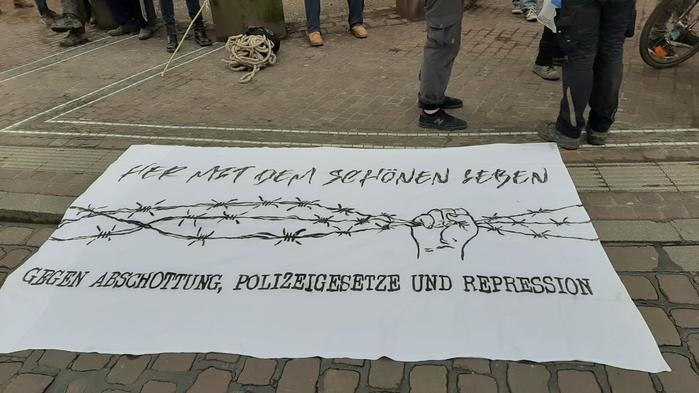 HER MIT DEM SCHÖNEN LEBEN
GEGEN ABSCHOTTUNG, POLIZEIGESETZE UND REPRESSION